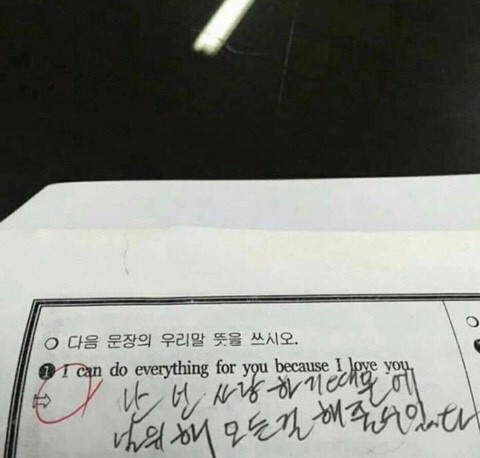 ○ 다음 문장의 우리말 뜻을 쓰시오.
❶ I can do everything for you because I love you.
⇨ 난 넌 사랑하기때문에
널위해 모든걸 해줄수있다